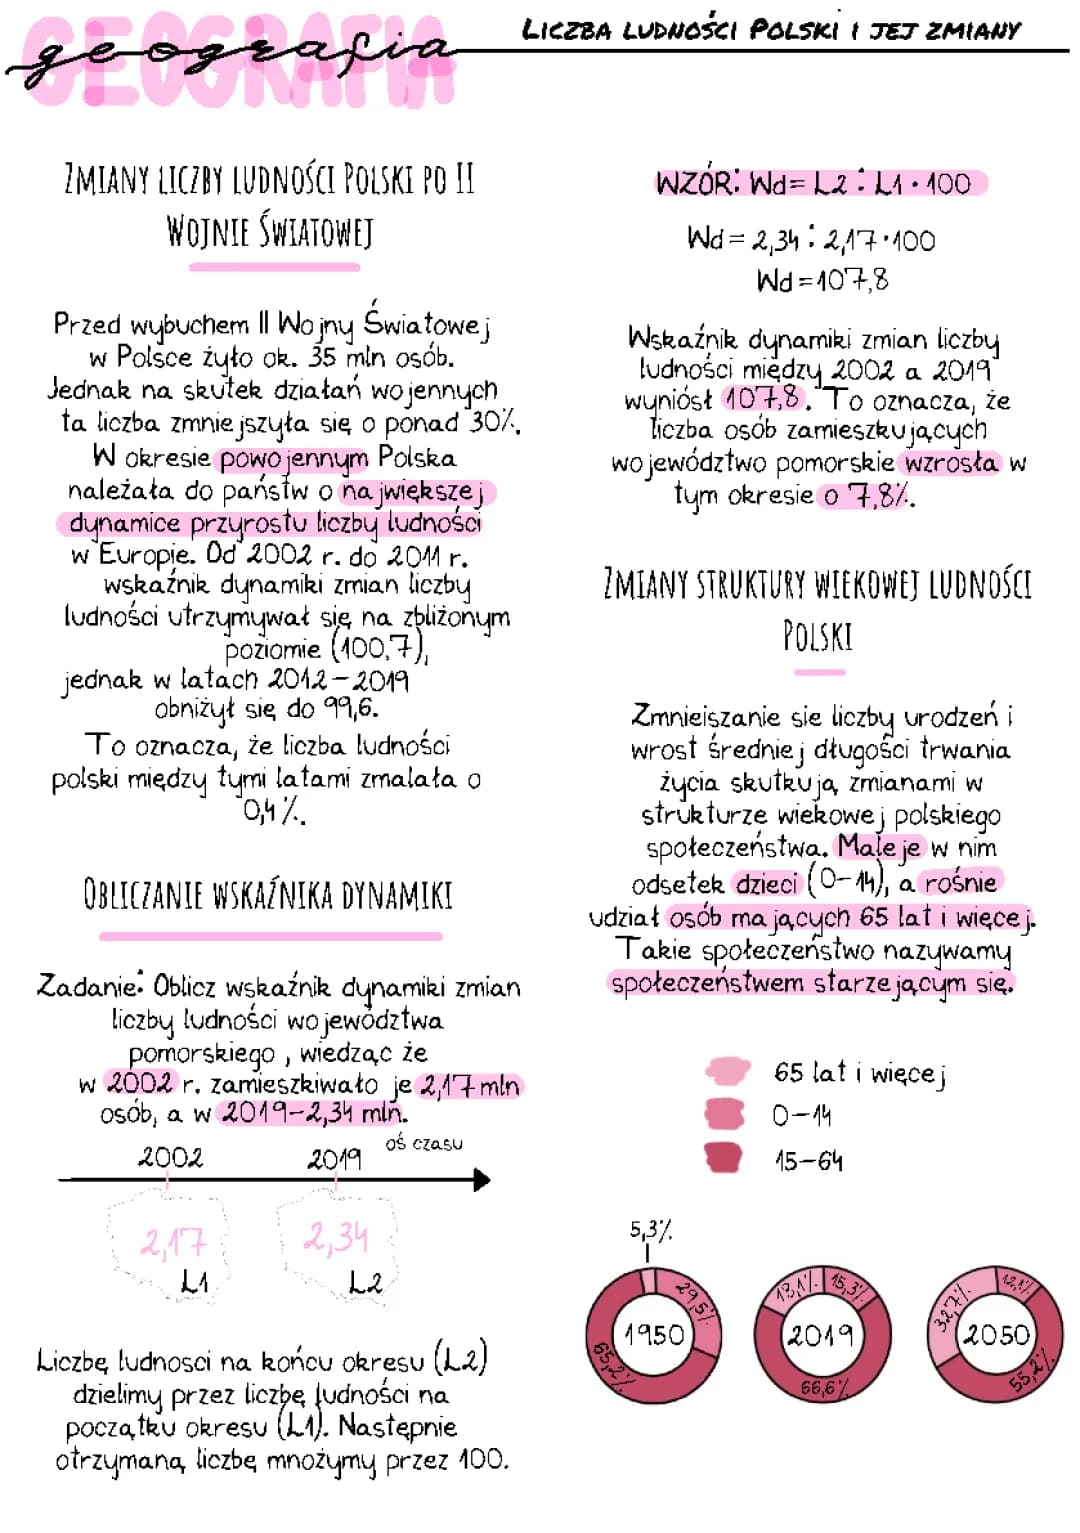 GEOGRAFIA
geografia
LICZBA LUDNOŚCI POLSKI I JEJ ZMIANY
ZMIANY LICZBY LUDNOŚCI POLSKI PO II
WOJNIE ŚWIATOWEJ
Przed wybuchem II Wojny Światowej
w Polsce żyło ok. 35 mln osób.
Jednak na skutek działań wojennych
ta liczba zmniejszyła się o ponad 30%.
W okresie powojennym Polska
należała do państw o największej
dynamice przyrostu liczby ludności
w Europie. Od 2002 r. do 2011 r.
wskaźnik dynamiki zmian liczby
ludności utrzymywał się na zbliżonym
poziomie (100,7),
jednak w latach 2012-2019
obniżył się do 99,6.
To oznacza, że liczba ludności
polski między tymi latami zmalała o
0,4%.
OBLICZANIE WSKAŹNIKA DYNAMIKI
Zadanie: Oblicz wskaźnik dynamiki zmian
liczby ludności województwa
pomorskiego, wiedząc że
w 2002 r. zamieszkiwało je 2,17 mln
osób, a w 2019-2,34 mln.
2002
2019
oś czasu
2,17
L1
2,34
L2
Liczbę ludnosci na końcu okresu (L2)
dzielimy przez liczbę ludności na
początku okresu (L1). Następnie
otrzymaną liczbę mnożymy przez 100.
WZÓR: Wd= L2 : L1 · 100
Wd = 2,34 : 2,17 · 100
Wd = 107,8
Wskaźnik dynamiki zmian liczby
ludności między 2002 a 2019
wyniósł 107,8. To oznacza, że
liczba osób zamieszkujących
województwo pomorskie wzrosła w
tym okresie o 7,8%.
ZMIANY STRUKTURY WIEKOWEJ LUDNOŚCI
POLSKI
Zmnieiszanie sie liczby urodzeń i
wrost średniej długości trwania
życia skutkują zmianami w
strukturze wiekowej polskiego
społeczeństwa. Maleje w nim
odsetek dzieci (0-14), a rośnie
udział osób mających 65 lat i więcej.
Takie społeczeństwo nazywamy
społeczeństwem starzejącym się.
65 lat i więcej
0-14
15-64
5,3%
29,5%
65,2%
1950
18,1%
15,3%
66,6%
2019
32,7%
12,1%
55,2%
2050